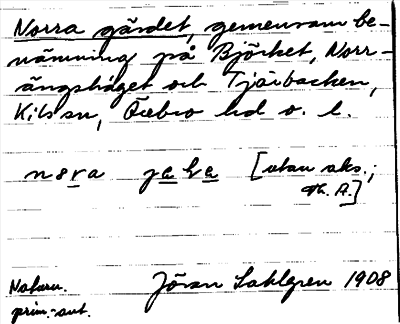 Norra gärdet, gemensam be-
nämning på Björket, Norr-
ängshaget och Tjärbacken,
Kils sn, Örebro hd o. l.
nǝra [utan aks.;
Th. A.]
Naturn.
prim.-ant.
Jöran Sahlgren 1908